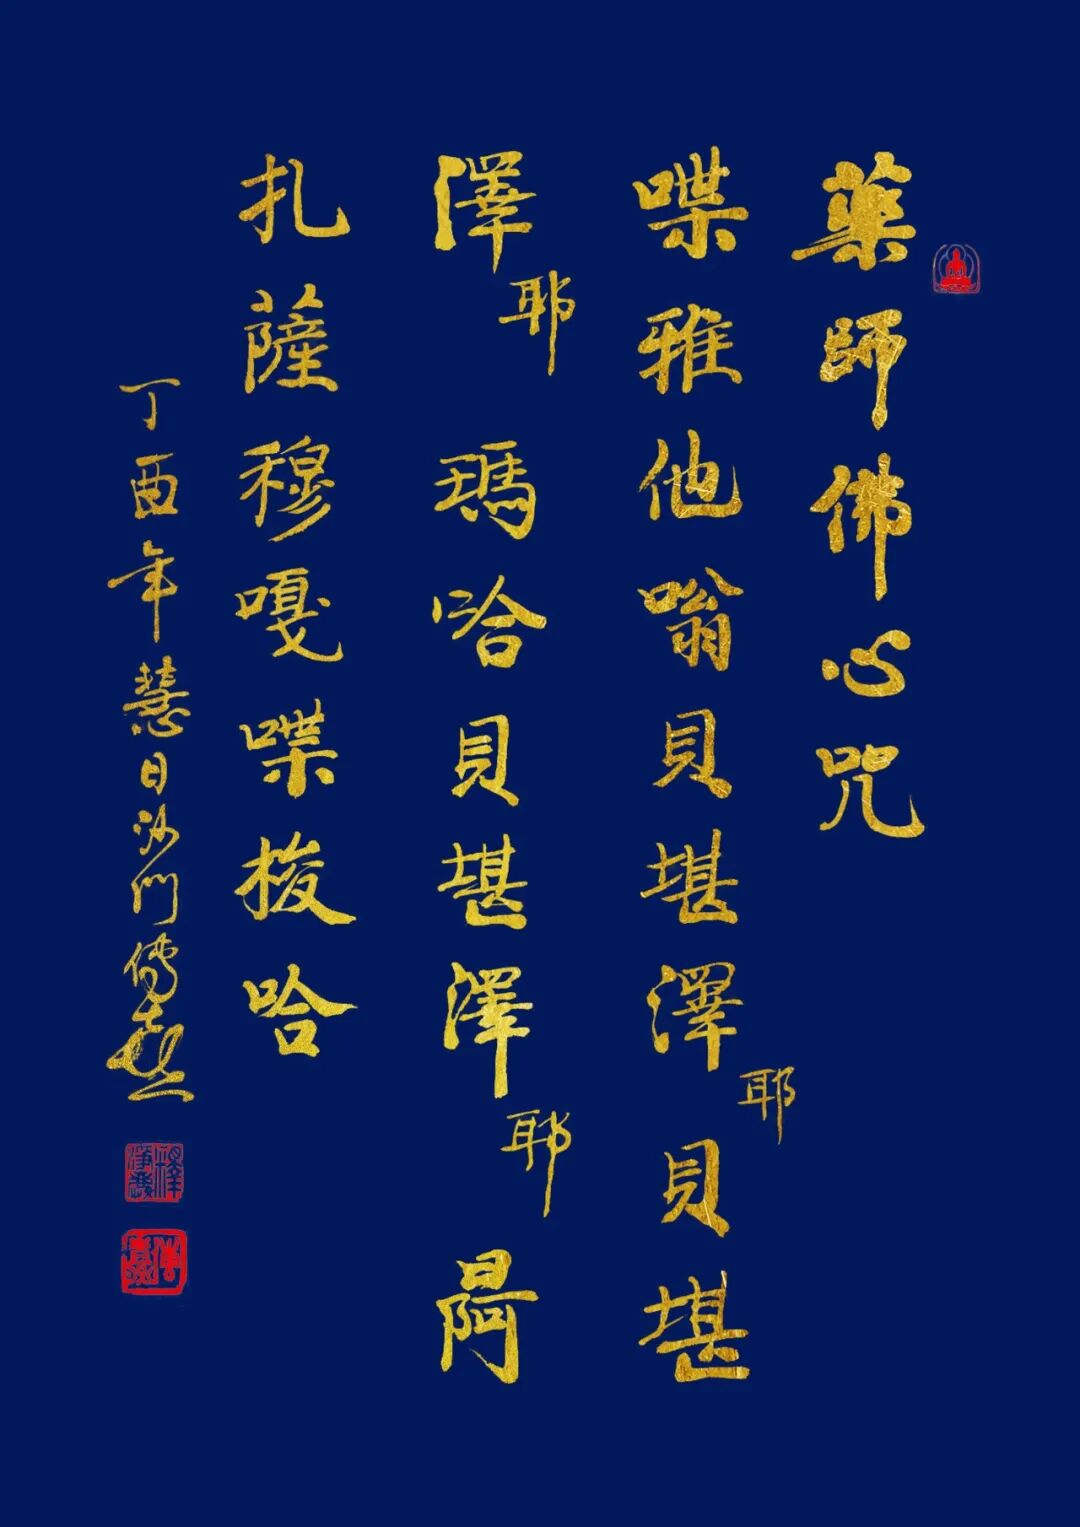 藥師佛心咒
喋雅他嗡貝堪澤耶貝堪
澤耶瑪哈貝堪澤耶㬌
扎薩穆嘎喋梭哈
丁酉年慧日沙門傳喜